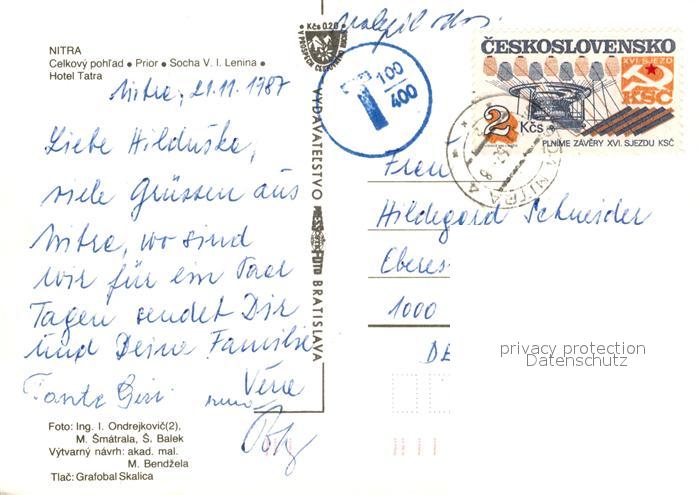 NITRA
Celkový pohľad ● Prior ● Socha V. I. Lenina ●
Hotel Tatra
Nitra, 21.11.1987
Liebe Hilduška,
viele Grüssen aus
Nitra, wo sind
wir für ein Paar
Tagen sendet Dir
und Deine Familie
Tante Věra
Foto: Ing. I. Ondrejkovič(2),
M. Šmátrala, Š. Balek
Výtvarný návrh: akad. mal.
M. Bendžela
Tlač: Grafobal Skalica
Kčs 0.20
VYDAVATEĽSTVO
BRATISLAVA
T
100
400
ČESKOSLOVENSKO
XVI. SJEZD
KSČ
2 Kčs
PLNÍME ZÁVĚRY XVI. SJEZDU KSČ
NITRA
Frau
Hildegard Schneider
Eberes
1000
DE
privacy protection
Datenschutz